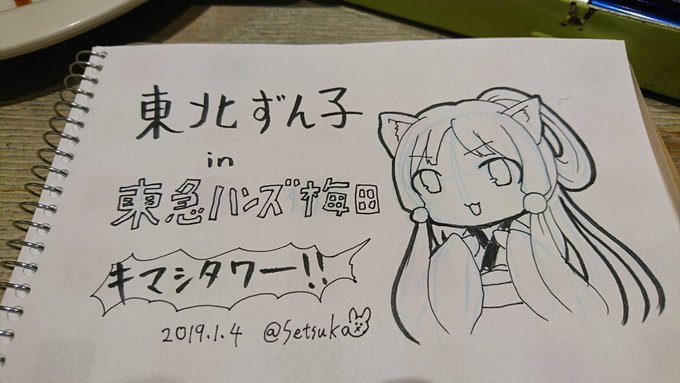 東北ずん子
in
東急ハンズ梅田
キマシタワー!!
2019.1.4 @Setsuka